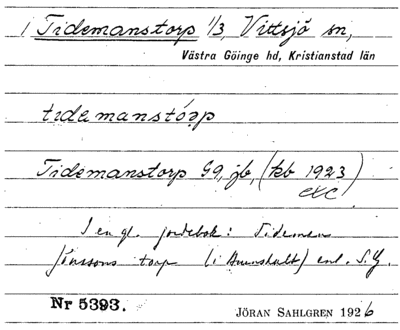 1 Tidemanstorp 1/3, Vittsjö sn,
Västra Göinge hd, Kristianstad län
tidemanstórp
Tidemanstorp GG, jb, (kb 1923)
etc
I en gl. jordebok: Tideman
Jönssons torp (i Brunshult) enl. S.G.
Nr 5393.
JÖRAN SAHLGREN 1926